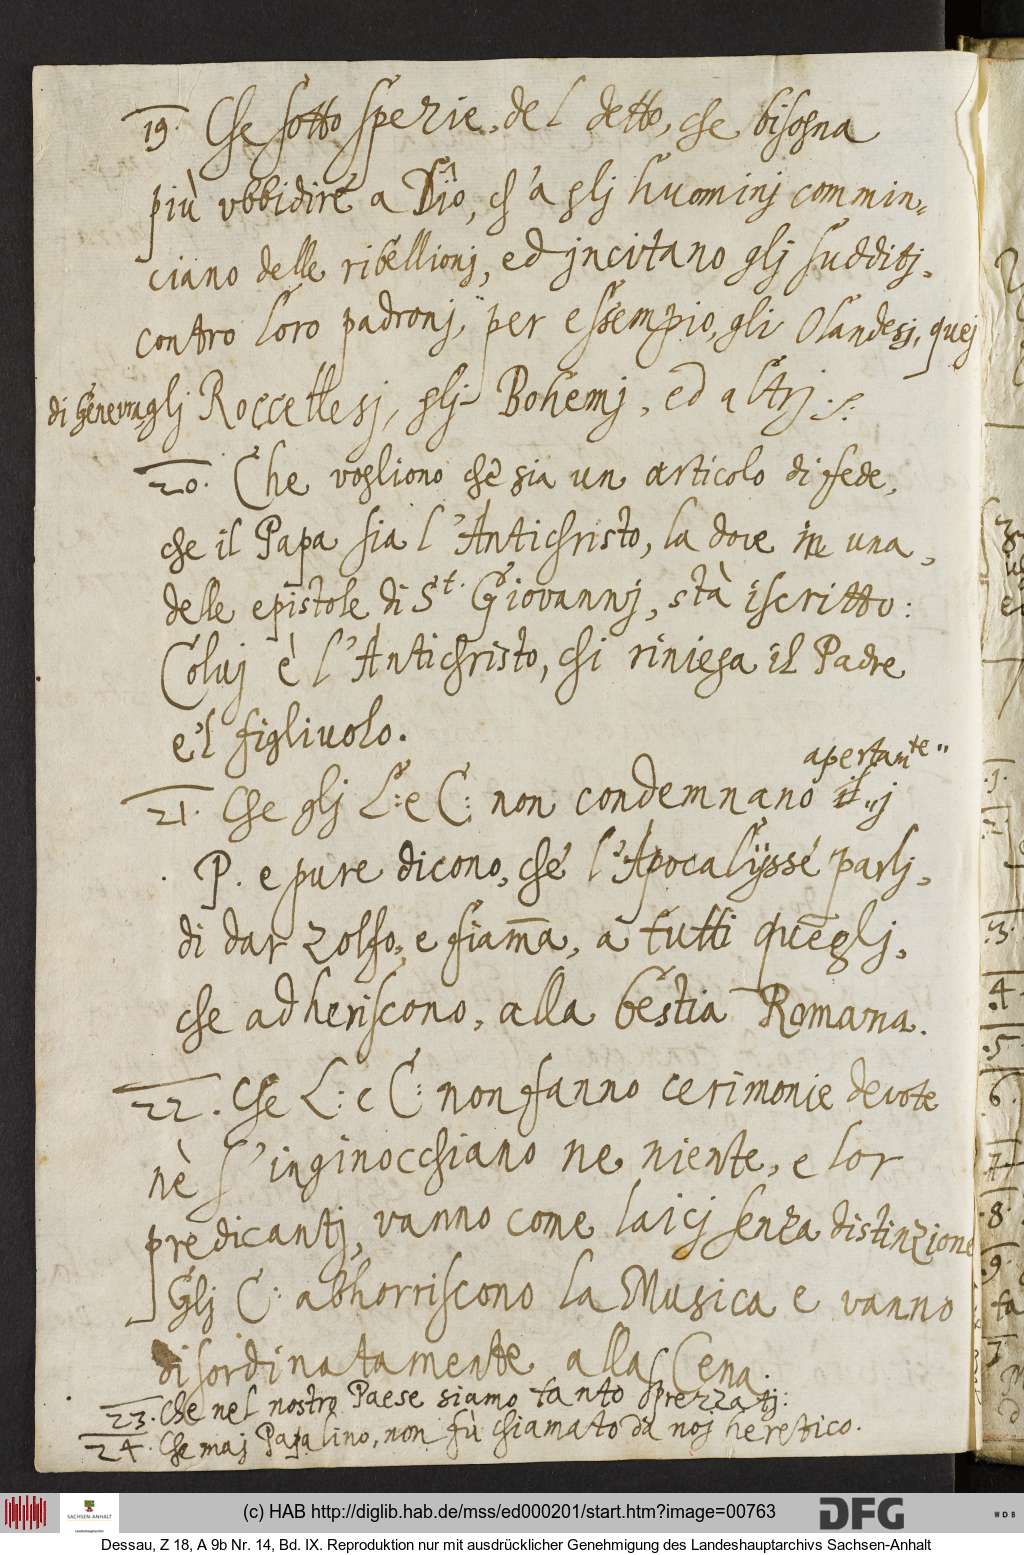 19. Che sotto spezie, del detto, che bisogna
più ubbidire a Dio, ch'a glj huominj commin,,
ciano delle ribellionj, ed jncitano glj sudditj,
contro loro padronj, per essempio, gli Olandesj, quej
di Genevra, glj Roccellesj, glj Bohemj, ed altrj. s:
20. Che vogliono che sia un articolo di fede,
che il Papa sia l'Antichristo, la dove in una,
delle epistole di St. Giovannj, stà iscritto:
Coluj è l'Antichristo, chi riniega il Padre
e'l figlivolo.
apertamte,,
21. Che glj L: e C: non condemnano il,,j
P. e pure dicono, che l'Apocalÿsse parlj,
di dar zolfo, e fiama, a tutti queglj,
che adheriscono, alla bestia Romana.
22. Che L: e C: non fanno cerimonie devote
nè s'inginocchiano ne niente, e lor
predicantj, vanno come laicj senza distinzione
Glj C: abhorriscono la Musica e vanno
disordinatamente alla Cena.
23. Che nel nostro Paese siamo tanto sprezzatj:
24. Che maj Papalino, non fù chiamato da noj heretico.
1.
2.
3.
4.
5.
6.
7.
8.
9.
SACHSEN-ANHALT
Landeshauptarchiv
(c) HAB http://diglib.hab.de/mss/ed000201/start.htm?image=00763
DFG
WDB
Dessau, Z 18, A 9b Nr. 14, Bd. IX. Reproduktion nur mit ausdrücklicher Genehmigung des Landeshauptarchivs Sachsen-Anhalt